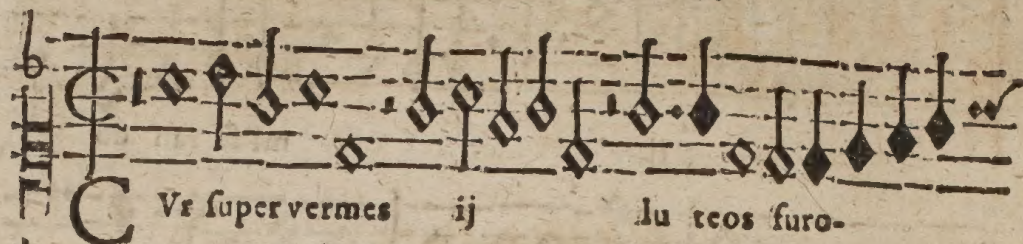 CVr ſuper vermes ij lu teos furo-